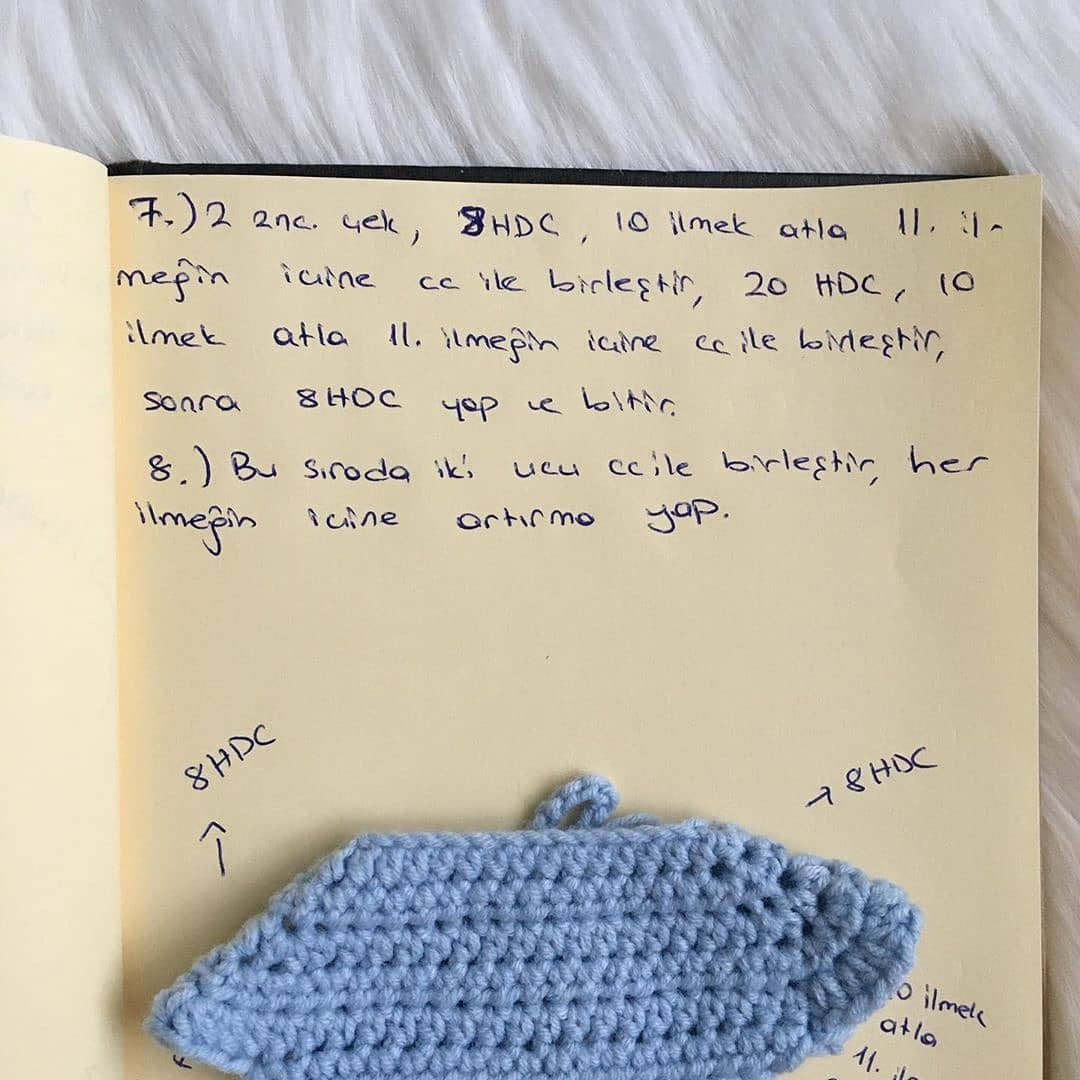 7.) 2 znc. çek, 8HDC, 10 ilmek atla 11. il-
meğin içine cc ile birleştir, 20 HDC, 10
ilmek atla 11. ilmeğin içine cc ile birleştir,
sonra 8HDC yap ve bitir.
8.) Bu sırada iki ucu cc ile birleştir, her
ilmeğin içine artırma yap.
8HDC
→ 8HDC
ilmek
atla
11.